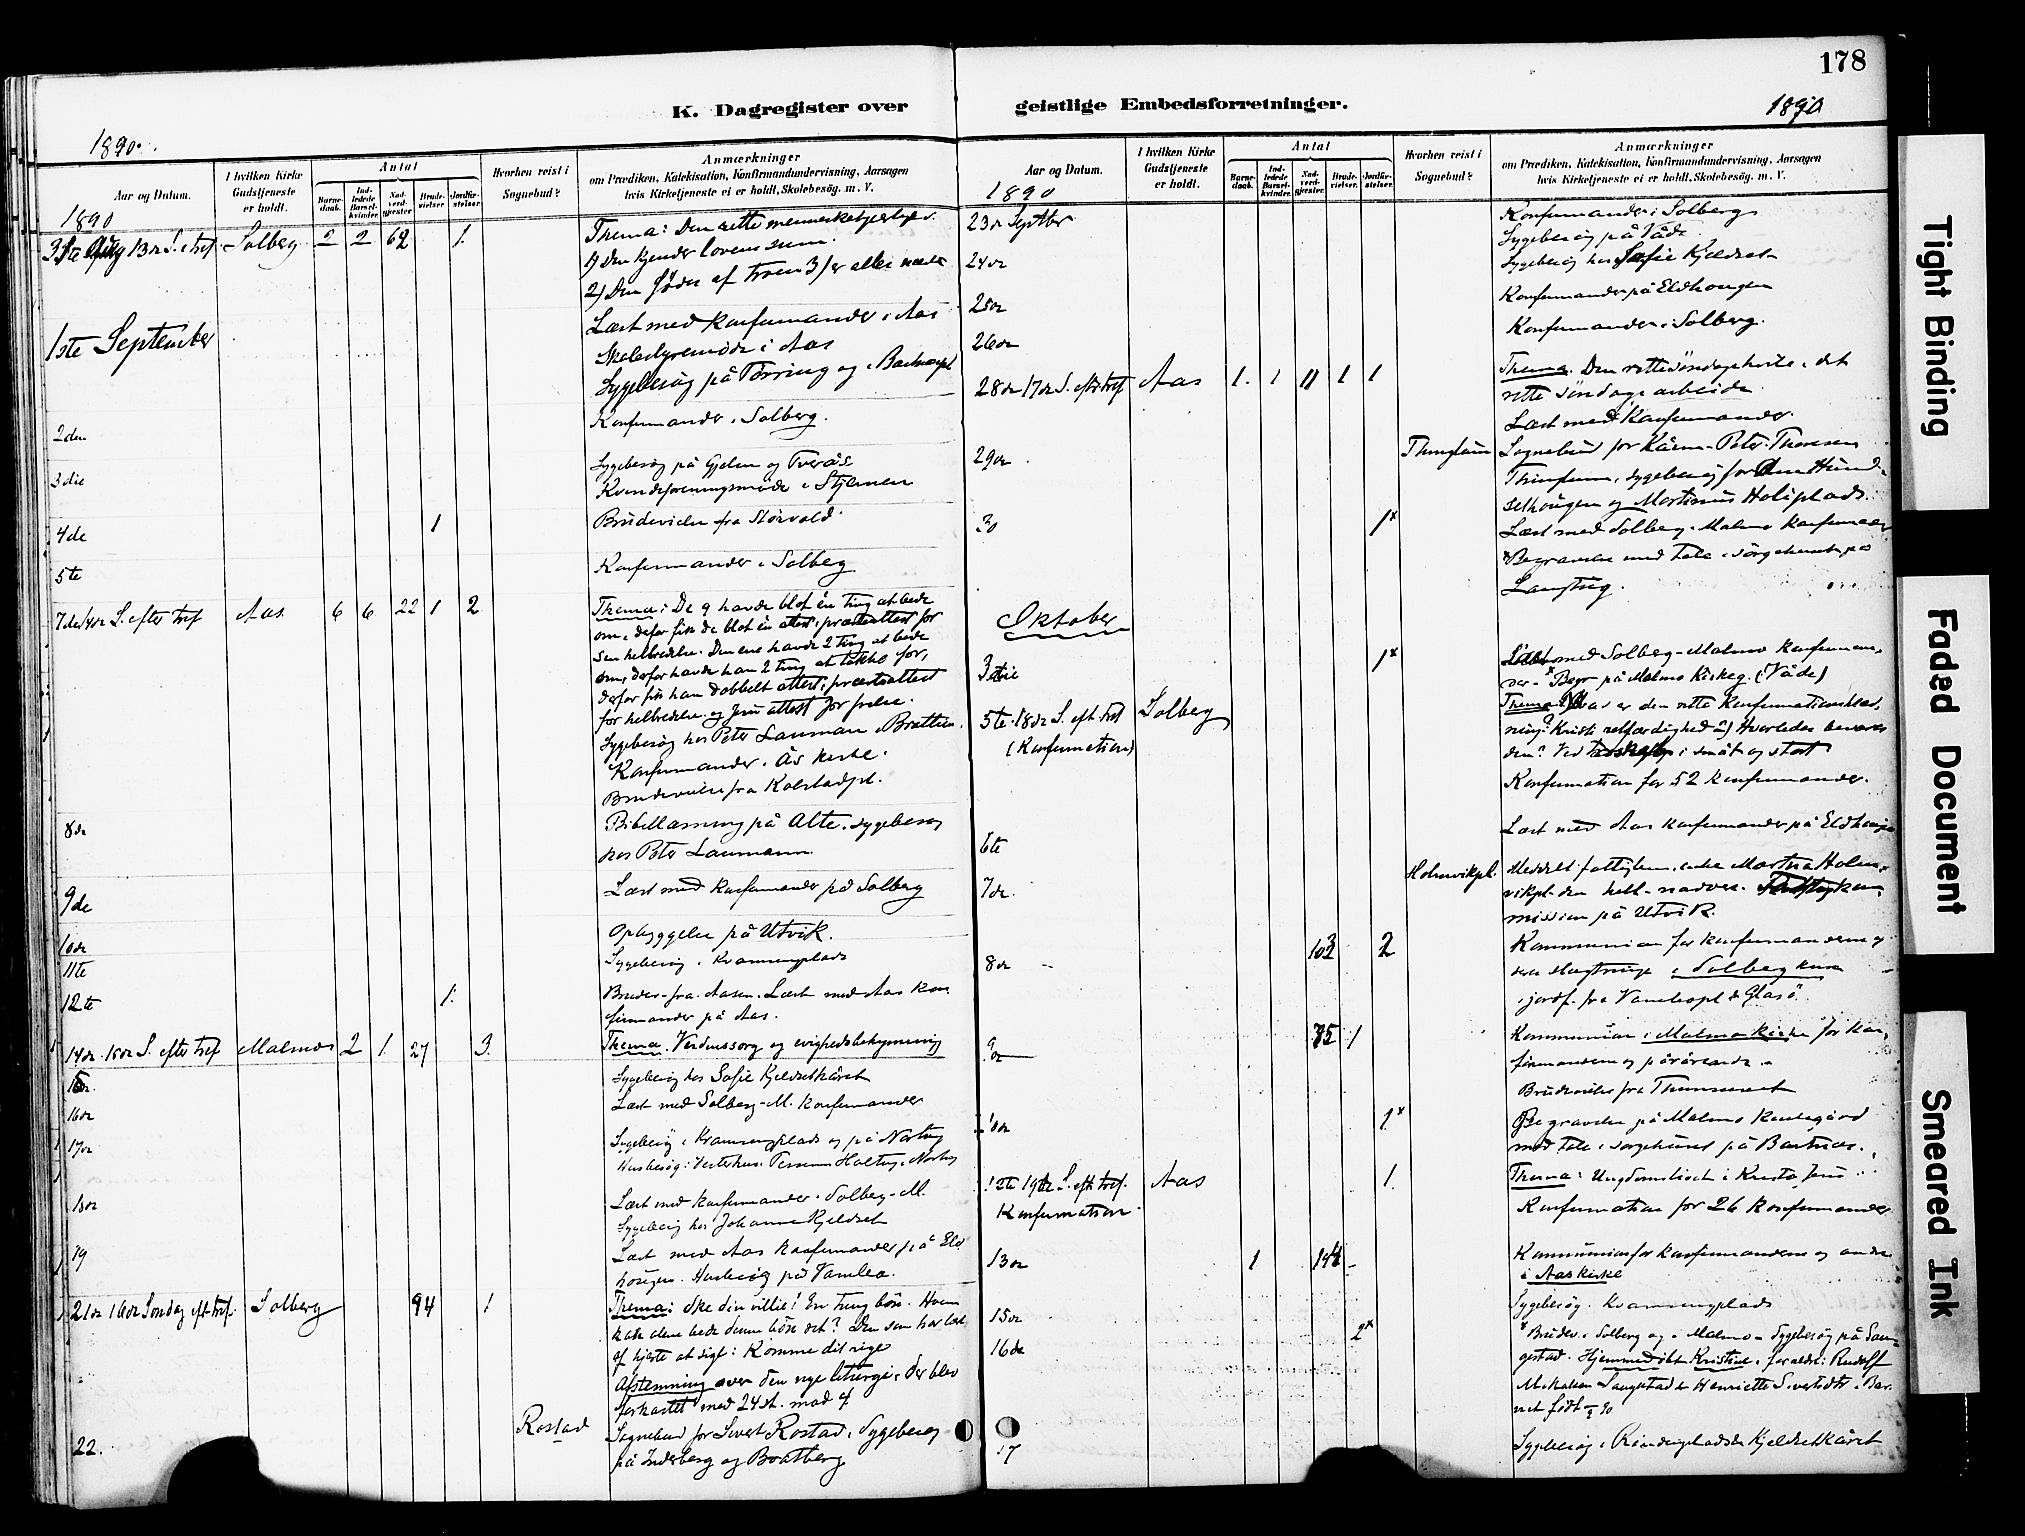 178
K. Dagregister over
geistlige Embedsforretninger.
1890.
1890
Aar og Datum.
I hvilken Kirke Gudstjeneste er holdt.
Antal
Barnedaab.
Indledede Barselkvinder.
Nadverdgjester
Brudevielser
Jordfæstelser
Hvorhen reist i Sognebud?
Anmærkninger
om Prædiken, Katekisation, Konfirmandundervisning, Aarsagen
hvis Kirketjeneste ei er holdt, Skolebesøg. m. V.
1890
31te Aug 13de S. e. tref. Solberg 2 2 62 1.
Thema: Den rette menneskekjerlighed.
1) Den kjender lovens sum.
2) Den födes af troen 3) er alles næste
1ste September
Læst med konfirmander i Aas
Skolestyremöde i Aas
Sygebesög på Tørring og i
2den
Konfirmander i Solberg.
3die
Sygebesög på Gjelin og Tverås.
Kvindeforeningsmöde i Stjernen
4de 1
Brudevielse fra Størvold
5te
Konfirmander i Solberg
7de 14de S. efter tref Aas 6 6 22 1 2
Thema: De 9 havde blot én ting at bede
om, derfor fik de blot én attest: præsteattest for
sin helbredelse. Den ene havde 2 ting at bede
om, derfor havde han 2 ting at takke for,
derfor fik han dobbelt attest: præsteattest
for helbredelse og Jesu attest for frelse.
Sygebesög hos Peter Lauman i Bratten.
Konfirmander i Ås kirke.
Brudevielse fra Kolstadpl.
8de
Bibellæsning på Alte. Sygebesög
hos Peter Laumann
9de
Læst med konfirmander på Solberg
10de
Opbyggelse på Utvik.
11te
Sygebesög i Kvamsengplads
12te 1.
Brudev. fra Aasen. Læst med Aas kon
firmander på Aas.
14de 15de S. efter tref Malmoe 2 1. 27 3.
Thema. Verdenssorg og evighedsbekymring
15de
Sygebesög hos Sofie Kjeldsetkåret
16de
Læst med Solberg-M. konfirmander
17de
Sygebesög i Kvamsengplads og på Nortug
18de
Læst med konfirmander i Solberg-M.
Sygebesög hos Johanna Kjeldset
19
Læst med Aas konfirmander på Eld
hougen. Husbesög på Vanlea.
21de 16de Söndag eft. tref. Solberg 94 1
Thema: Ske din villie! En tung bön. Hvem
kan dene bede denne bön det? Den som har lært
af hjerte at sige: Komme dit rige
Afstemning over den nye liturgi. Der blev
forkastet med 24 st. mod 4
22. Rostad
Sognebud for Sivert Rostad. Sygebesög
på Inderberg og Boatberg
1890
Aar og Datum.
I hvilken Kirke Gudstjeneste er holdt.
Antal
Barnedaab.
Indledede Barselkvinder.
Nadverdgjester.
Brudevielser.
Jordfæstelser.
Hvorhen reist i Sognebud?
Anmærkninger
om Prædiken, Katekisation, Konfirmandundervisning, Aarsagen
hvis Kirketjeneste ei er holdt, Skolebesøg. m. V.
1890
23de Septbr
Konfirmander i Solberg
Sygebesög på Våde
24de
Sygebesög hos Sofie Kjeldset
25de
Konfirmander på Eldhougen
26de
Konfirmander i Solberg.
28de 17de S. eft. tref. Aas 1. 1 11 1 1
Thema. Den rette söndagshvile, det
rette söndags arbeide
Læst med konfirmander.
29de
Sognebud for Peter Thoresen
og Martinus Holiplads.
30 1x
Læst med Solberg-Malmo konfirmander
x Begravelse med tale i sörgehuset på
Langtug.
Oktober
3die 1x
Læst med Solberg-Malmo konfirman
der - x Begr. på Malmo kirkeg. (Våde)
5te 18de S. eft. tref Solberg
(Konfirmation)
Thema: Hvad er den rette Konfirmationsklæd
ning? Kristi retfærdighed 2) Hvorledes bevares
den? Ved troskab i småt og stort
Konfirmation for 52 konfirmander.
6te
Læst med Aas konfirmander på Eldhougen
7de Holmvikpl.
Meddelt fattiglem, enke Martha Holm
vikpl. den hell. nadver. kom
mission på Utvik.
8de 103 2
Kommunion for konfirmanderne og
deres slægtninge i Solberg kirke
jordf. fra Vanleapl & Glasö.
9de 75 1
Kommunion i Malmo kirke for kon
firmanderne og pårörende.
Brudevielse fra
10de 1x
Begravelse på Malmo kirkegård
med tale i sorgehuset på Bartnæs.
12te 19de S. eft. tref. Aas 1.
Konfirmation
Thema: Ungdomslivet i Kristo Jesu
Konfirmation for 26 konfirmander
13de 1 144
Kommunion for konfirmanderne og andre
i Aas kirke
15de
Sygebesög. Kvamsengplads
16de 2x
x Brudev. i Solberg og i Malmo - Sygebesög på Sau
gestad. Hjemmedöbt Kristine, forældre: Rudolf
Mikalsen Saugestad & Henriette Sivertsdtr. Bar
net födt 90
17
Sygebesög i Rindengplads & Kjeldsetkåret
Tight Binding
Faded Document
Smeared Ink